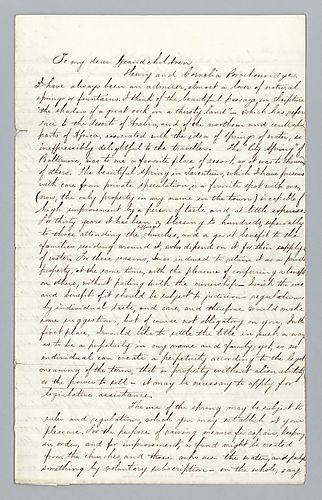 To my dear Grandchildren,
Henry and Cornelia Brackenridge.
I have always been an admirer, almost a lover of natural
springs or fountains. I think of the beautiful passage in Scripture
"the shadow of a great rock in a thirsty land" - which has refer-
ence to the deserts of Arabia, and of the northern and central
parts of Africa, associated with the idea of springs of water, so
inexpressibly delightful to the traveller. The "City Spring" of
Baltimore, was to me a favorite place of resort, as it was to thousands
of others. The beautiful spring in Tarentum, which I have preserved
with care from private speculation, is a favorite spot with me,
(now, the only property in my name in the town) is capable of
high improvement by a person of taste and at little expense.
For thirty years it has been a blessing to hundreds, especially
to those attending the churches, and a great benefit to the
families residing around it, who depend on it for their supply
of water. For these reasons, I was induced to retain it as a private
property, at the same time, with the pleasure of conferring a benefit
on others, without parting with the ownership. I wish the use
and benefit of it should be subject to judicious regulations
by individual taste, and care, and therefore would make
some suggestions, but of course not obligatory on you. In the
first place, I would like to settle the title in such a way
as to be a perpetuity in my name and family; yet as no
individual can create a perpetuity according to the legal
meaning of the term, that is property without alienability
or the power to sell - it may be necessary to apply for
legislative assistance.
The use of the spring may be subject to
rules and regulations, which you may establish at your
pleasure. For the purpose of raising means for repair, keeping
in order, and for improvement, a fund might be created
from the churches, and those who use the water, and perhaps
something by voluntary subscription - on the whole, say